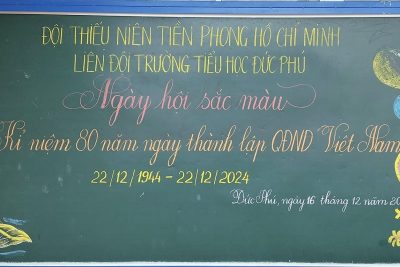 ĐỘI THIẾU NIÊN TIỀN PHONG HỒ CHÍ MINH
LIÊN ĐỘI TRƯỜNG TIỂU HỌC ĐỨC PHÚ
Ngày hội sắc màu
Kỉ niệm 80 năm ngày thành lập QĐND Việt Nam
22/12/1944 - 22/12/2024
Đức Phú, ngày 16 tháng 12 năm 20